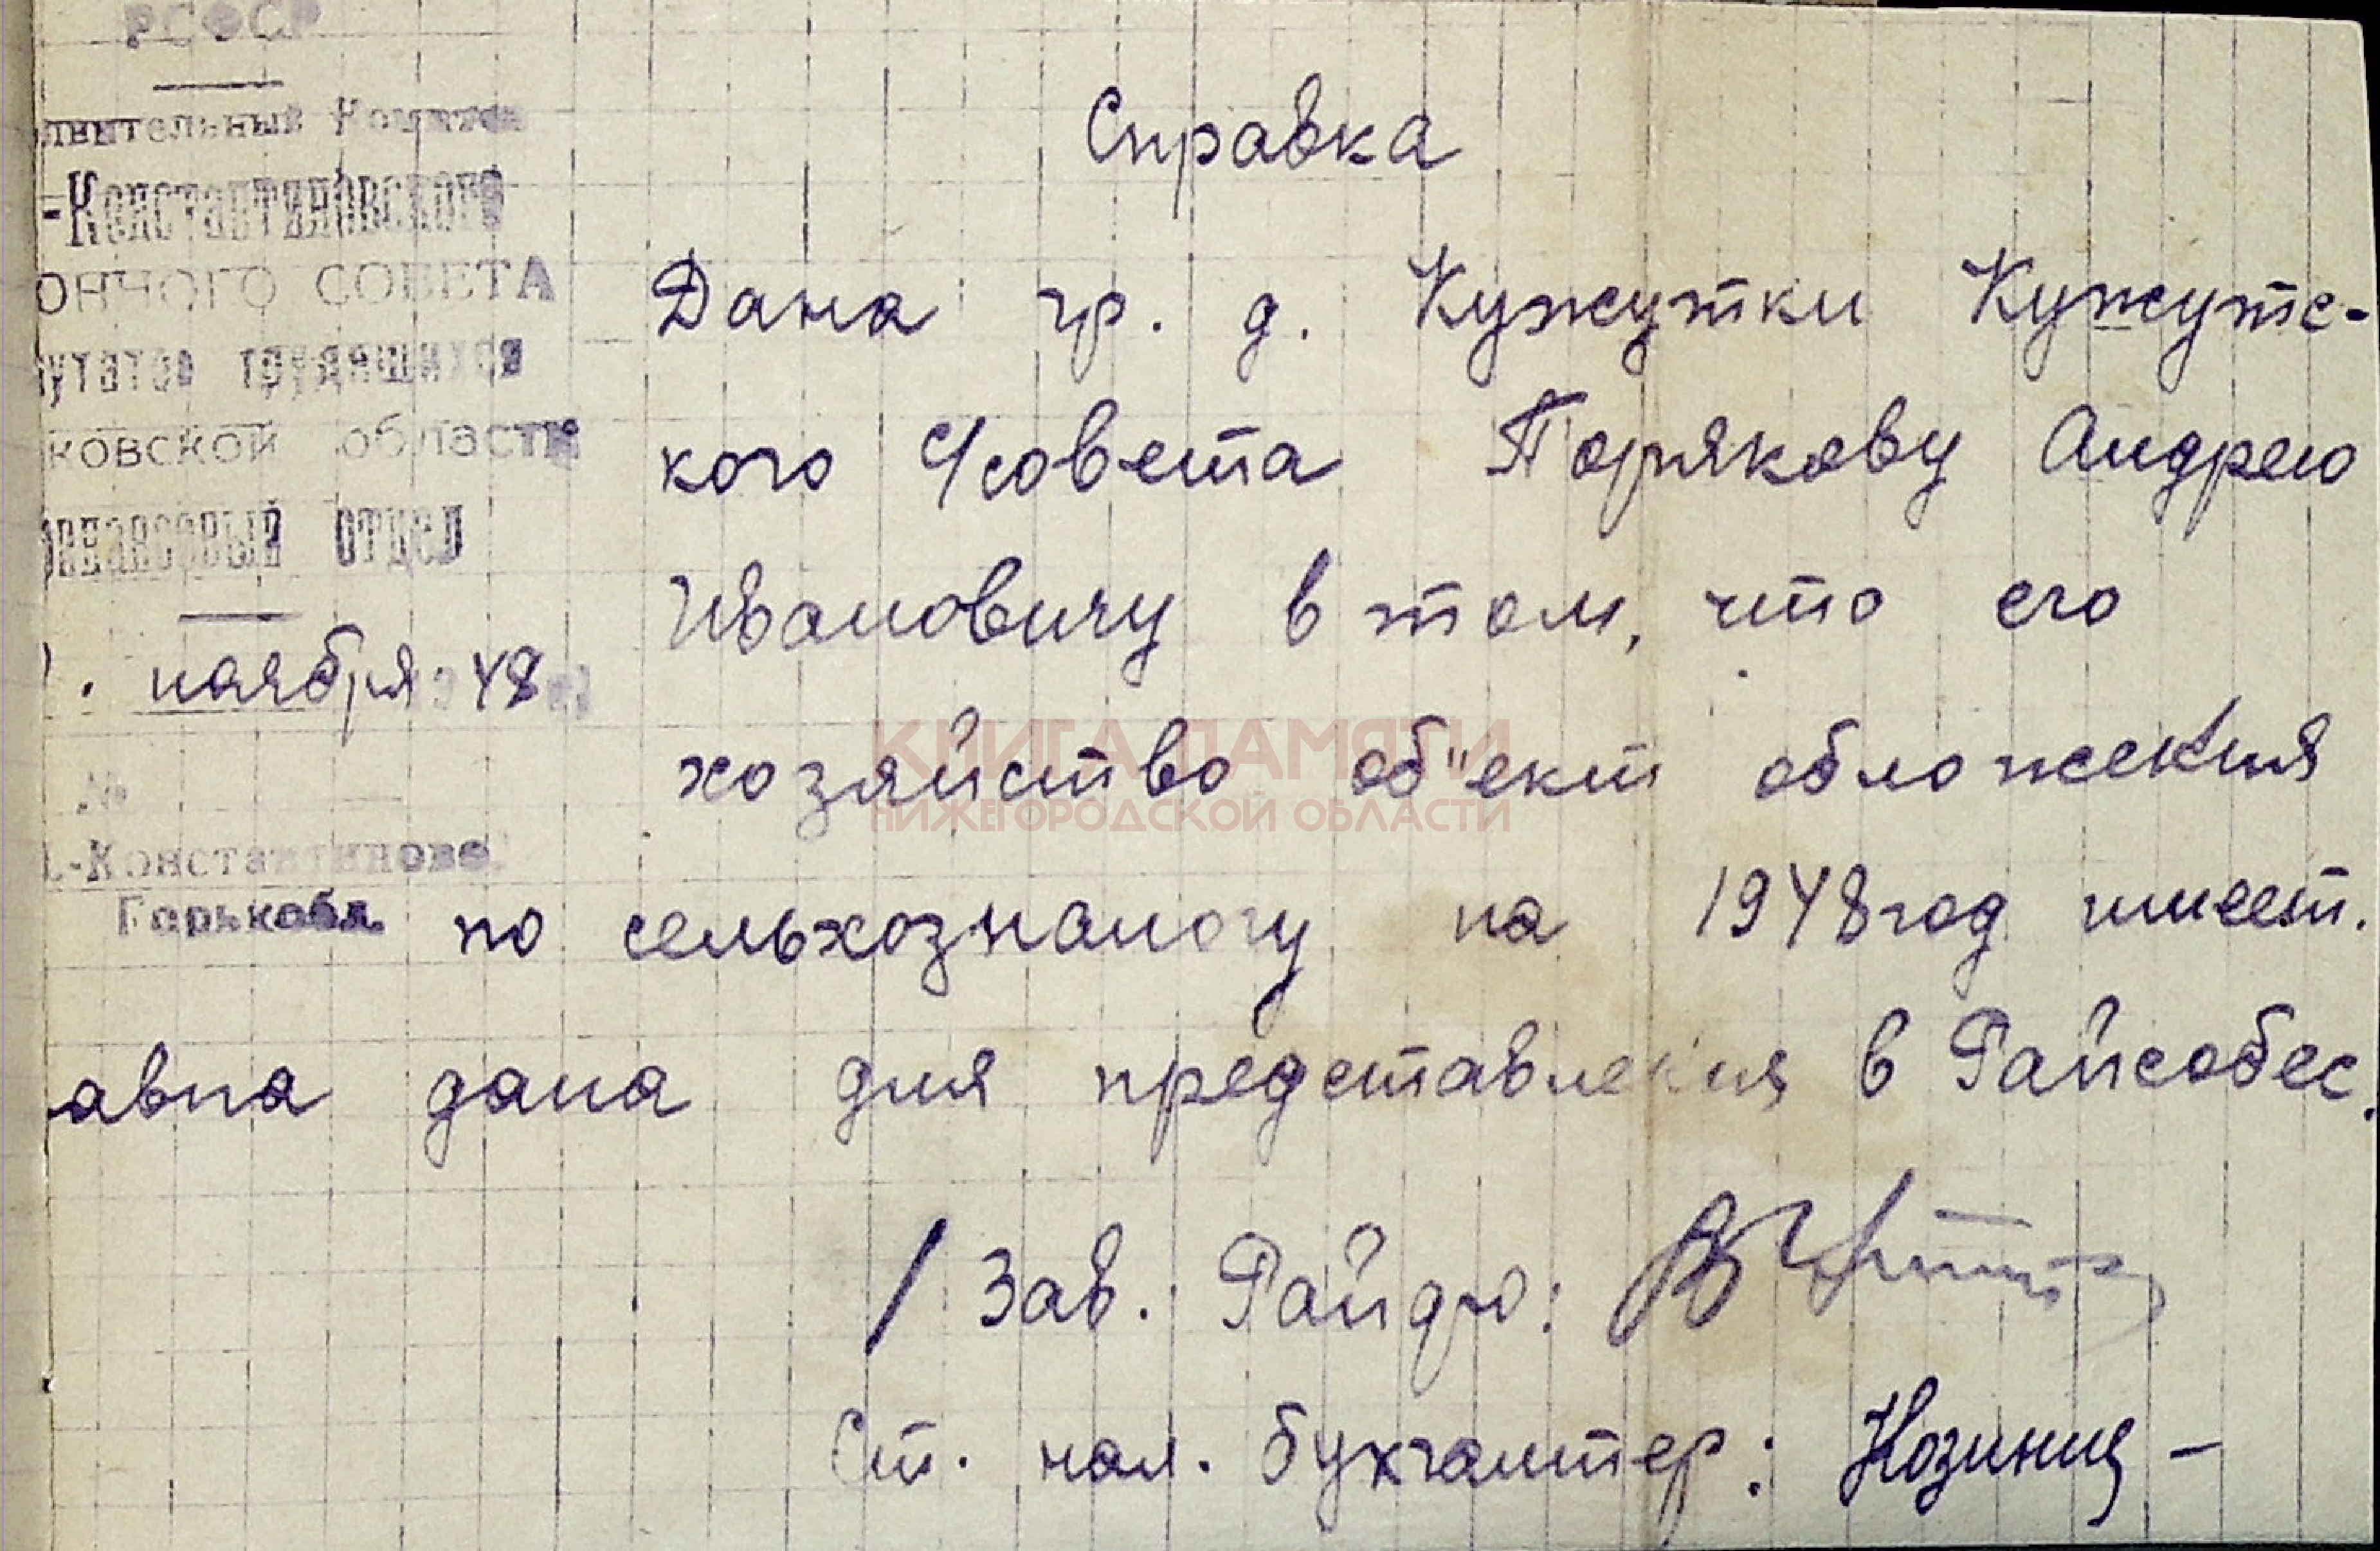 РСФСР
лнительный Комитет
-Константиновского
онного СОВЕТА
путатов трудящихся
ковской области
финансовый отдел
. ноября 48
№
-Константиново
Горькобл.
Справка
Дана гр. д. Кужутки Кужутс-
кого с/совета Порякову Андрею
Ивановичу в том, что его
хозяйство об"ект обложения
по сельхозналогу на 1948 год имеет.
авка дана для представления в Райсобес.
/ Зав. Райфо:
Ст. нал. бухгалтер:
КНИГА ПАМЯТИ
НИЖЕГОРОДСКОЙ ОБЛАСТИ